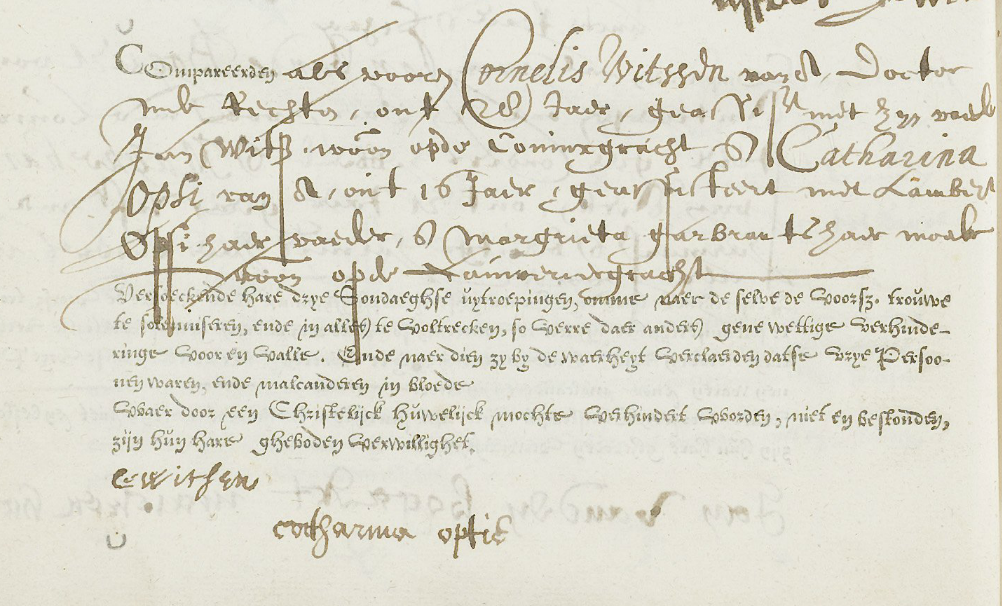 Compareerden als vooren Cornelis Witszen van A, Doctor
inde Rechten, out 28 Jaer, geassist met zyn vader
Jan Witsz, woon opde Coninxgracht, & Catharina
Opsi van A, out 16 Jaer, geassisteert met Lambert
Opsi haer vaeder, & Margrieta garbrants haer moeder
woon op de Lauweriergracht
Versoeckende hare drye Sondaeghse uytroepingen, omme naer de selve de voorsz. trouwe
te solemniseren, ende in alles te voltrecken, so verre daer anders gene wettige verhinde-
ringe voor en valle. Ende naer dien zy by de waerheyt verclaerden datse vrye Persoo-
nen waren, ende malcanderen in bloede
waer door een Christelijck huwelijck mochte verhindert worden, niet en bestonden,
zijn hun hare gheboden verwillighet.
CWitsen
catharina optie